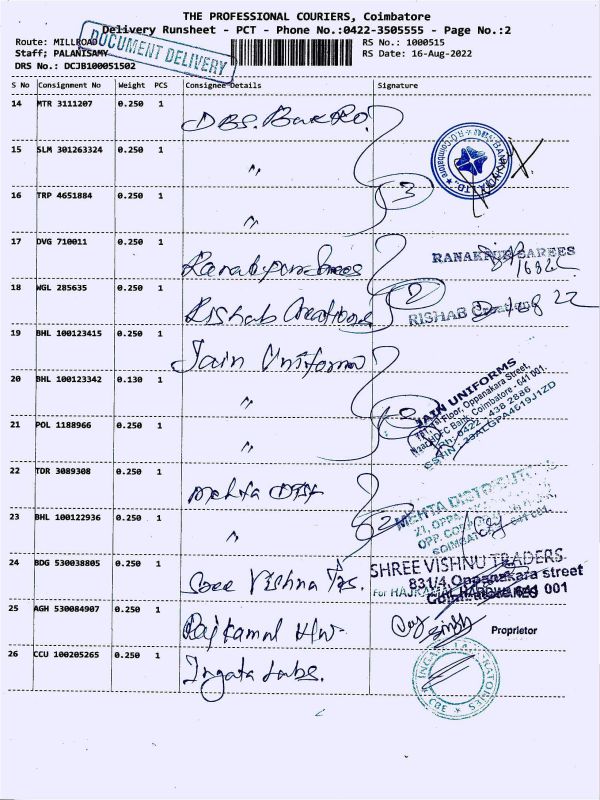 THE PROFESSIONAL COURIERS, Coimbatore
Delivery Runsheet - PCT - Phone No.:0422-3505555 - Page No.:2
Route: MILLROAD
RS No.: 1000515
Staff; PALANISAMY
RS Date: 16-Aug-2022
DOCUMENT DELIVERY
DRS No.: DCJB100051502
S No Consignment No Weight PCS Consignee Details Signature
14 MTR 3111207 0.250 1 DBS. Bank RO.
15 SLM 301263324 0.250 1 "
16 TRP 4651884 0.250 1 "
3
17 DVG 710011 0.250 1 Ranakpur Sarees
RANAKPUR SAREES
18 WGL 285635 0.250 1 Rishab Creations
2
RISHAB Creations
19 BHL 100123415 0.250 1 Jain Uniforms
20 BHL 100123342 0.130 1 "
JAIN UNIFORMS
1st Floor, Oppanakara Street,
Near HDFC Bank, Coimbatore - 641 001.
Ph: 0422 - 438 2886
21 POL 1188966 0.250 1 "
22 TDR 3089308 0.250 1 Mehta Dist
MEHTA DISTRIBUTORS
23 BHL 100122936 0.250 1 "
2
24 BDG 530038805 0.250 1 Sree Vishnu Trs.
SHREE VISHNU TRADERS
831/4, Oppanakara street
641 001
For RAJKAMAL HARDWARES
25 AGH 530084907 0.250 1 Rajkamal H/w.
Proprietor
26 CCU 100205265 0.250 1 Ingata Labs.
CBE